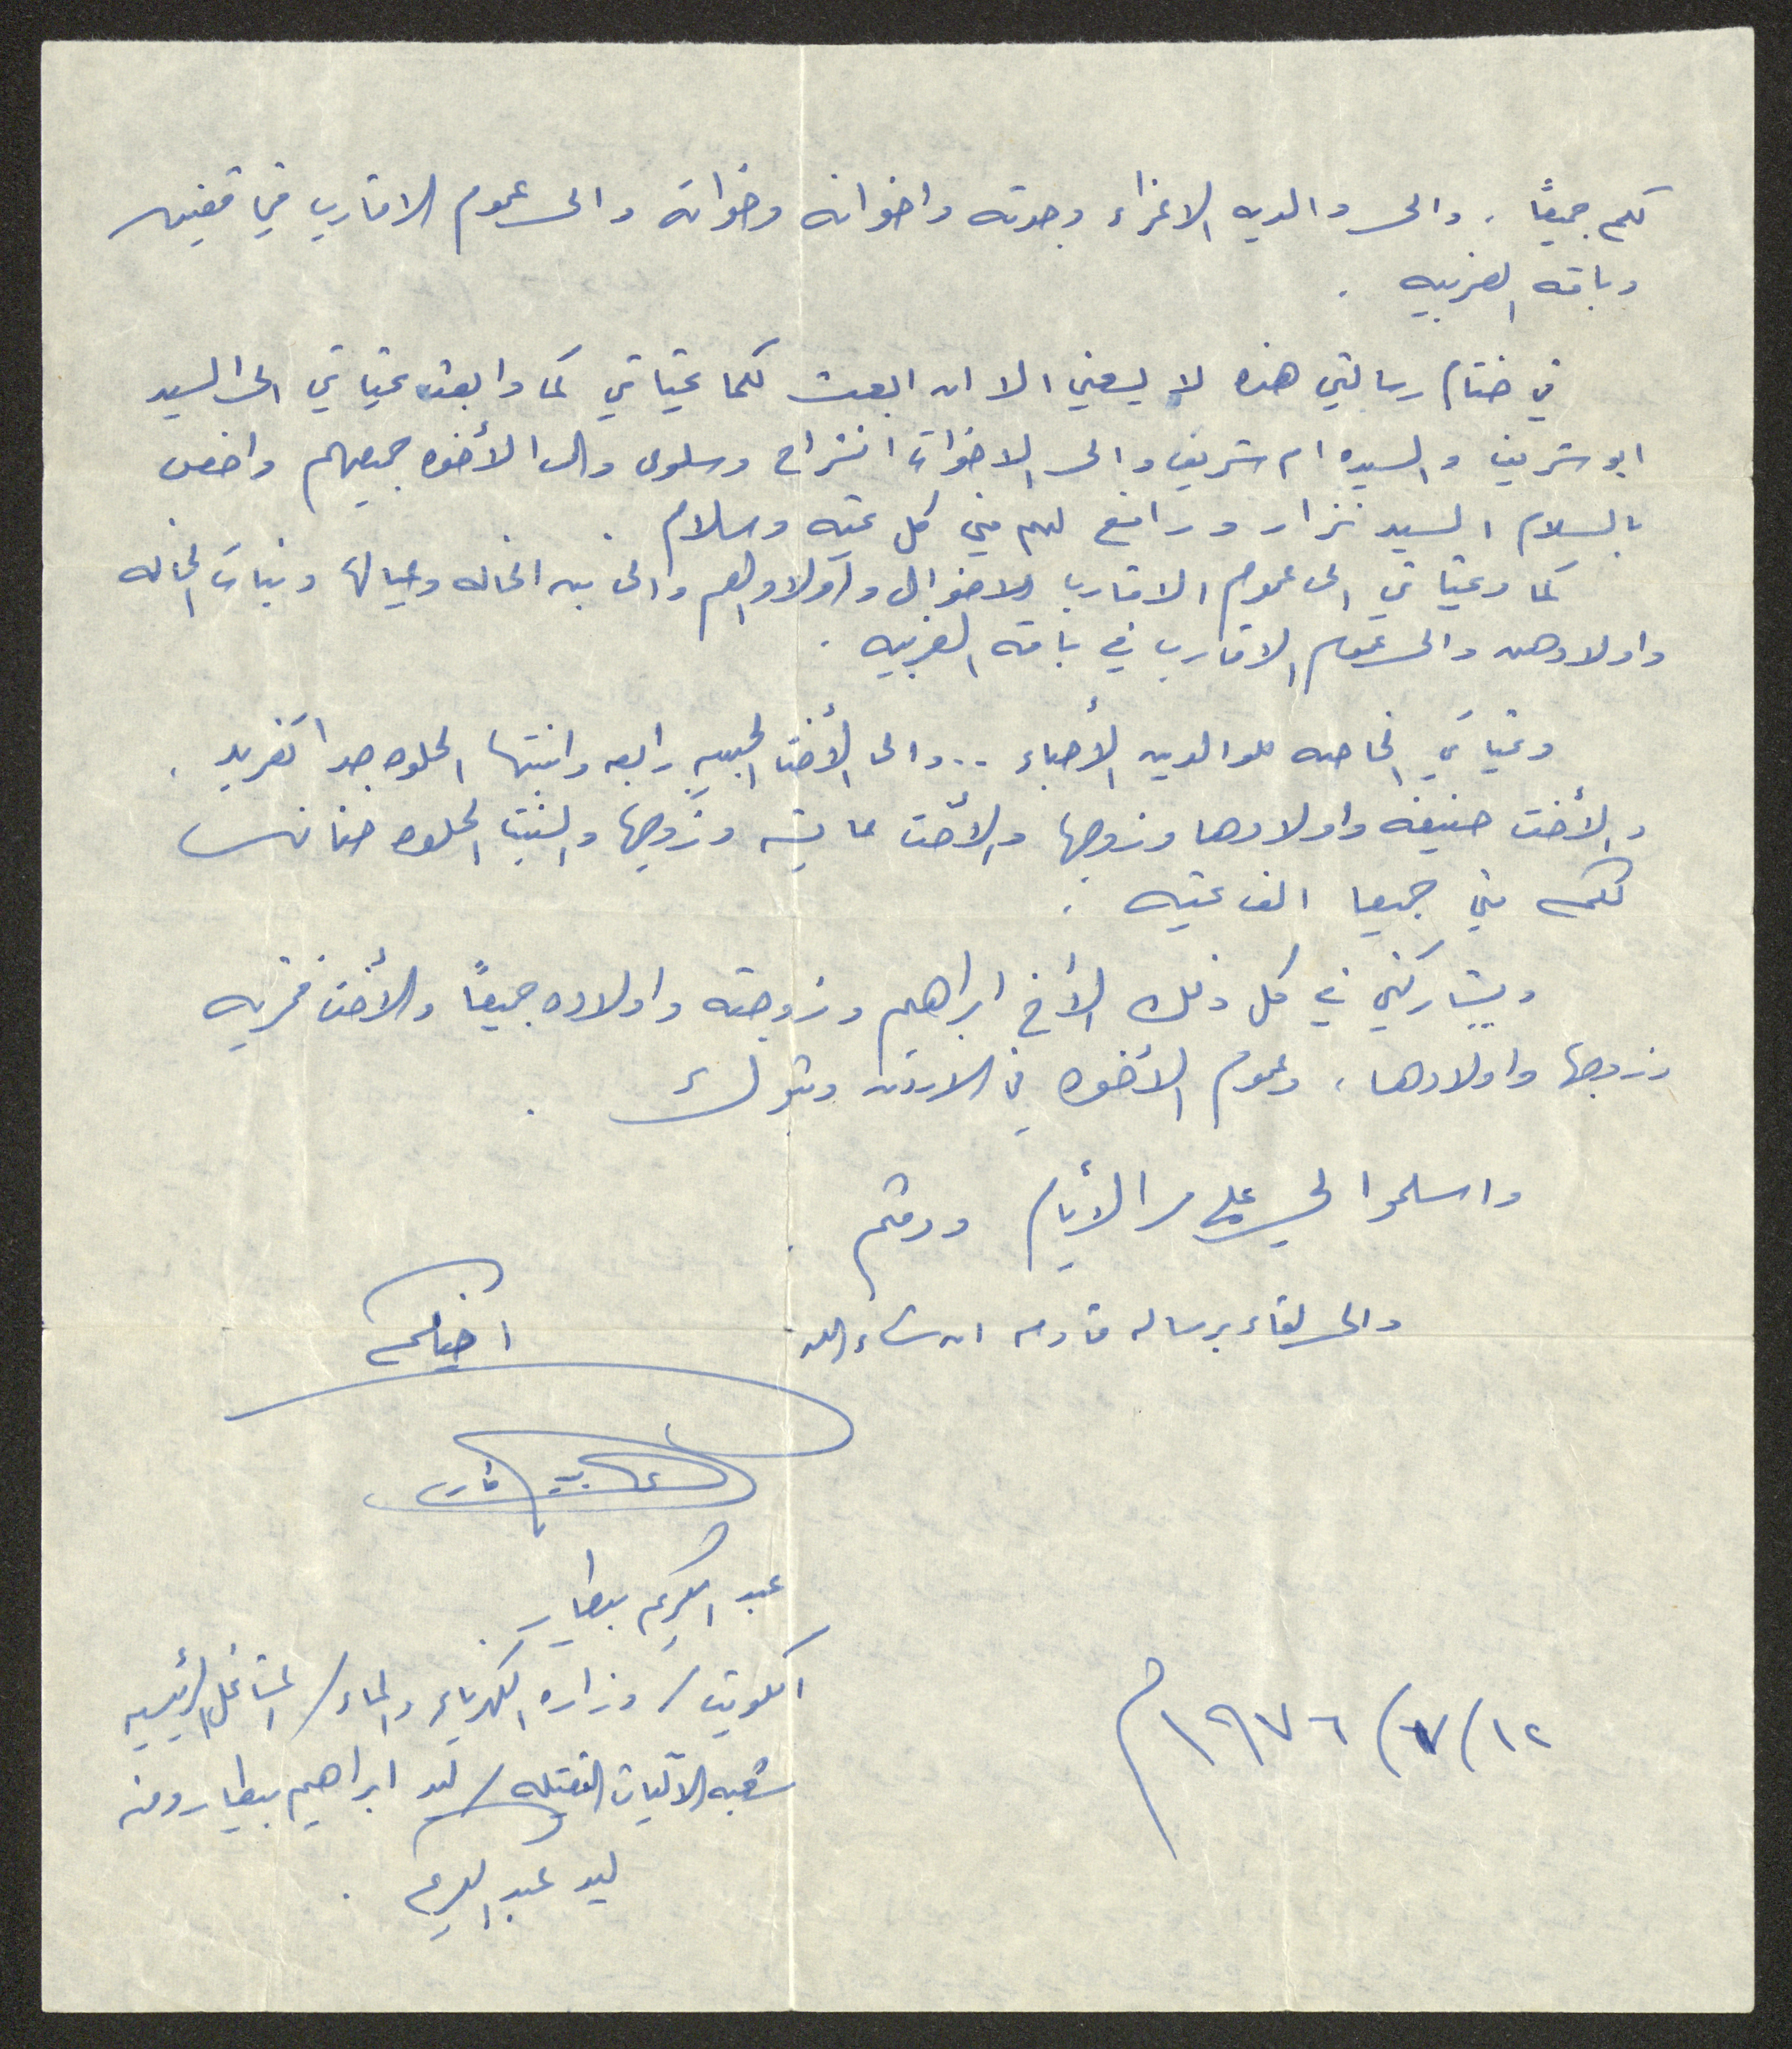 لكم جميعاً. والى والديه الاعزاء وجدته واخوانه وخواته والى عموم الاقارب في قفين
وباقه الغربيه .
في ختام رسالتي هذه لا يسعني الا ان ابعث لكما تحياتي كما وابعث تحياتي الى السيد
ابو شريف والسيده ام شريف والى الاخوات انشراح وسلوى والى الأخوه جميعهم واخص
بالسلام السيد نزار ورافع لهم مني كل تحيه وسلام .
كما وتحياتي الى عموم الاقارب والاخوال وأولادهم والى بنت الخاله وعيالها وبنات الخاله
واولادهن والى عموم الاقارب في باقه الغربيه .
وتحياتي الخاصه للوالدين الأحباء .. والى الأخت الحبيبه رابعه وابنتها الحلوه جدا تغريد .
والأخت حنيفه واولادها وزوجها والأخت عايشه وزوجها والبنت الحلوه حنان
لكم مني جميعا الف تحيه .
ويشاركني في كل ذلك الأخ ابراهيم وزوجته واولاده جميعاً والأخت فخريه
وزوجها واولادها، وعموم الأخوه في الاردن وتبوك .
واسلموا لي على مر الأيام ودمتم .
والى لقاء برساله قادمه ان شاء الله
اخيكم
عبد الكريم بيطار
الكويت / وزاره الكهرباء والماء / المشاغل الرئيسيه
شعبه الآليات الثقيله / ليد ابراهيم بيطار ومنه
ليد عبد الكريم .
١٢/ ٧/ ١٩٧٦م